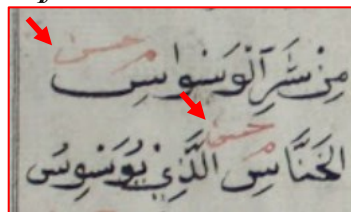 حسن
مِنْ شَرِّ الْوَسْوَاسِ
حسن
الْخَنَّاسِ الَّذِيْ يُوَسْوِسُ